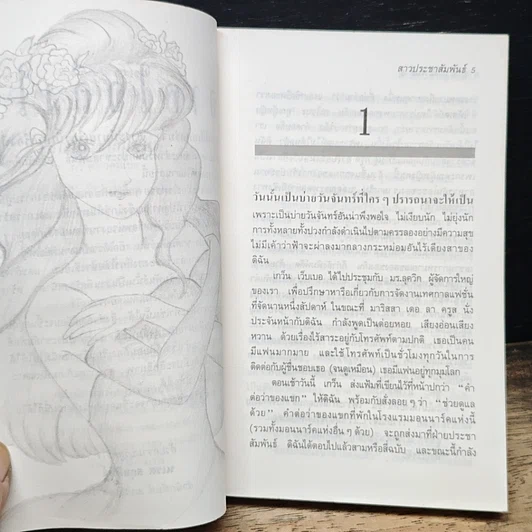 สาวประชาสัมพันธ์ 5
1
วันนั้นเป็นบ่ายวันจันทร์ที่ใคร ๆ ปรารถนาจะให้เป็น
เพราะเป็นบ่ายวันจันทร์อันน่าพึงพอใจ ไม่เงียบนัก ไม่ยุ่งนัก
การทั้งหลายทั้งปวงกำลังดำเนินไปตามครรลองอย่างมีความสุข
ไม่มีเค้าว่าฟ้าจะผ่าลงมากลางกระหม่อมอันไร้เดียงสาของ
ดิฉัน
เกวิน เว็บเบอ ได้ไปประชุมกับ มร.ลุควิก ผู้จัดการใหญ่
ของเรา เพื่อปรึกษาหารือเกี่ยวกับการจัดงานเทศกาลแฟชั่น
ที่จัดนานหนึ่งสัปดาห์ ในขณะที่ มาริสสา เดอ ลา ครูส นั่ง
ประจันหน้ากับดิฉัน กำลังพูดเป็นต่อยหอย เสียงอ่อนเสียง
หวาน ด้วยเรื่องไร้สาระอยู่กับโทรศัพท์ตามปกติ เธอเป็นคน
มีแฟนมากมาย และใช้โทรศัพท์เป็นชั่วโมงทุกวันในการ
ติดต่อกับผู้ชื่นชอบเธอ (จนดูเหมือน) เธอมีแฟนอยู่ทุกมุมโลก
ตอนเช้าวันนี้ เกวิน ส่งแฟ้มที่เขียนไว้ที่หน้าปกว่า “คำ
ต่อว่าของแขก” ให้ดิฉัน พร้อมกับสั่งลอย ๆ ว่า “ช่วยดูแล
ด้วย” คำต่อว่าของแขกที่พักในโรงแรมมอนนาร์คแห่งนี้
(รวมทั้งมอนนาร์คแห่งอื่น ๆ ด้วย) จะถูกส่งมาที่ฝ่ายประชา
สัมพันธ์ ดิฉันได้ตอบไปแล้วสามหรือสี่ฉบับ และขณะนี้กำลัง